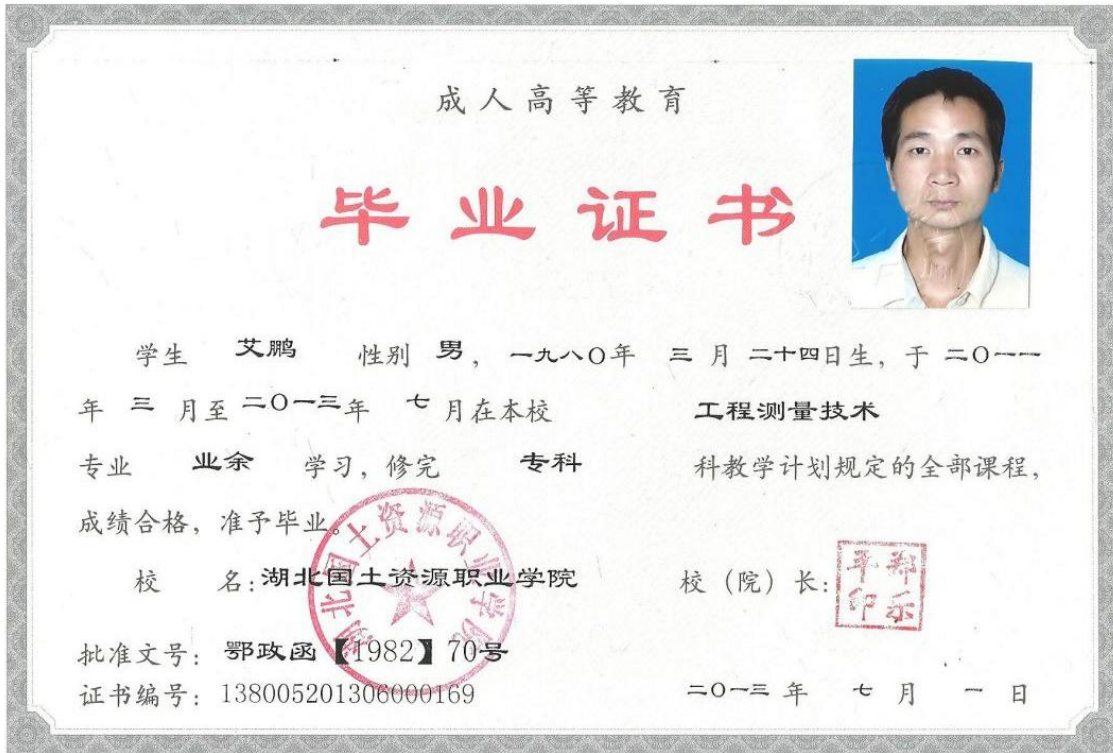 成人高等教育
毕业证书
学生 艾鹏 性别 男，一九八〇年 三月二十四日生，于二〇一一
年 三 月至二〇一三年 七月在本校 工程测量技术
专业 业余 学习，修完 专科 科教学计划规定的全部课程，
成绩合格，准予毕业。
校 名：湖北国土资源职业学院 校（院）长：
湖北国土资源职业学院
批准文号：鄂政函【1982】70号
证书编号：138005201306000169 二〇一三年 七月 一日